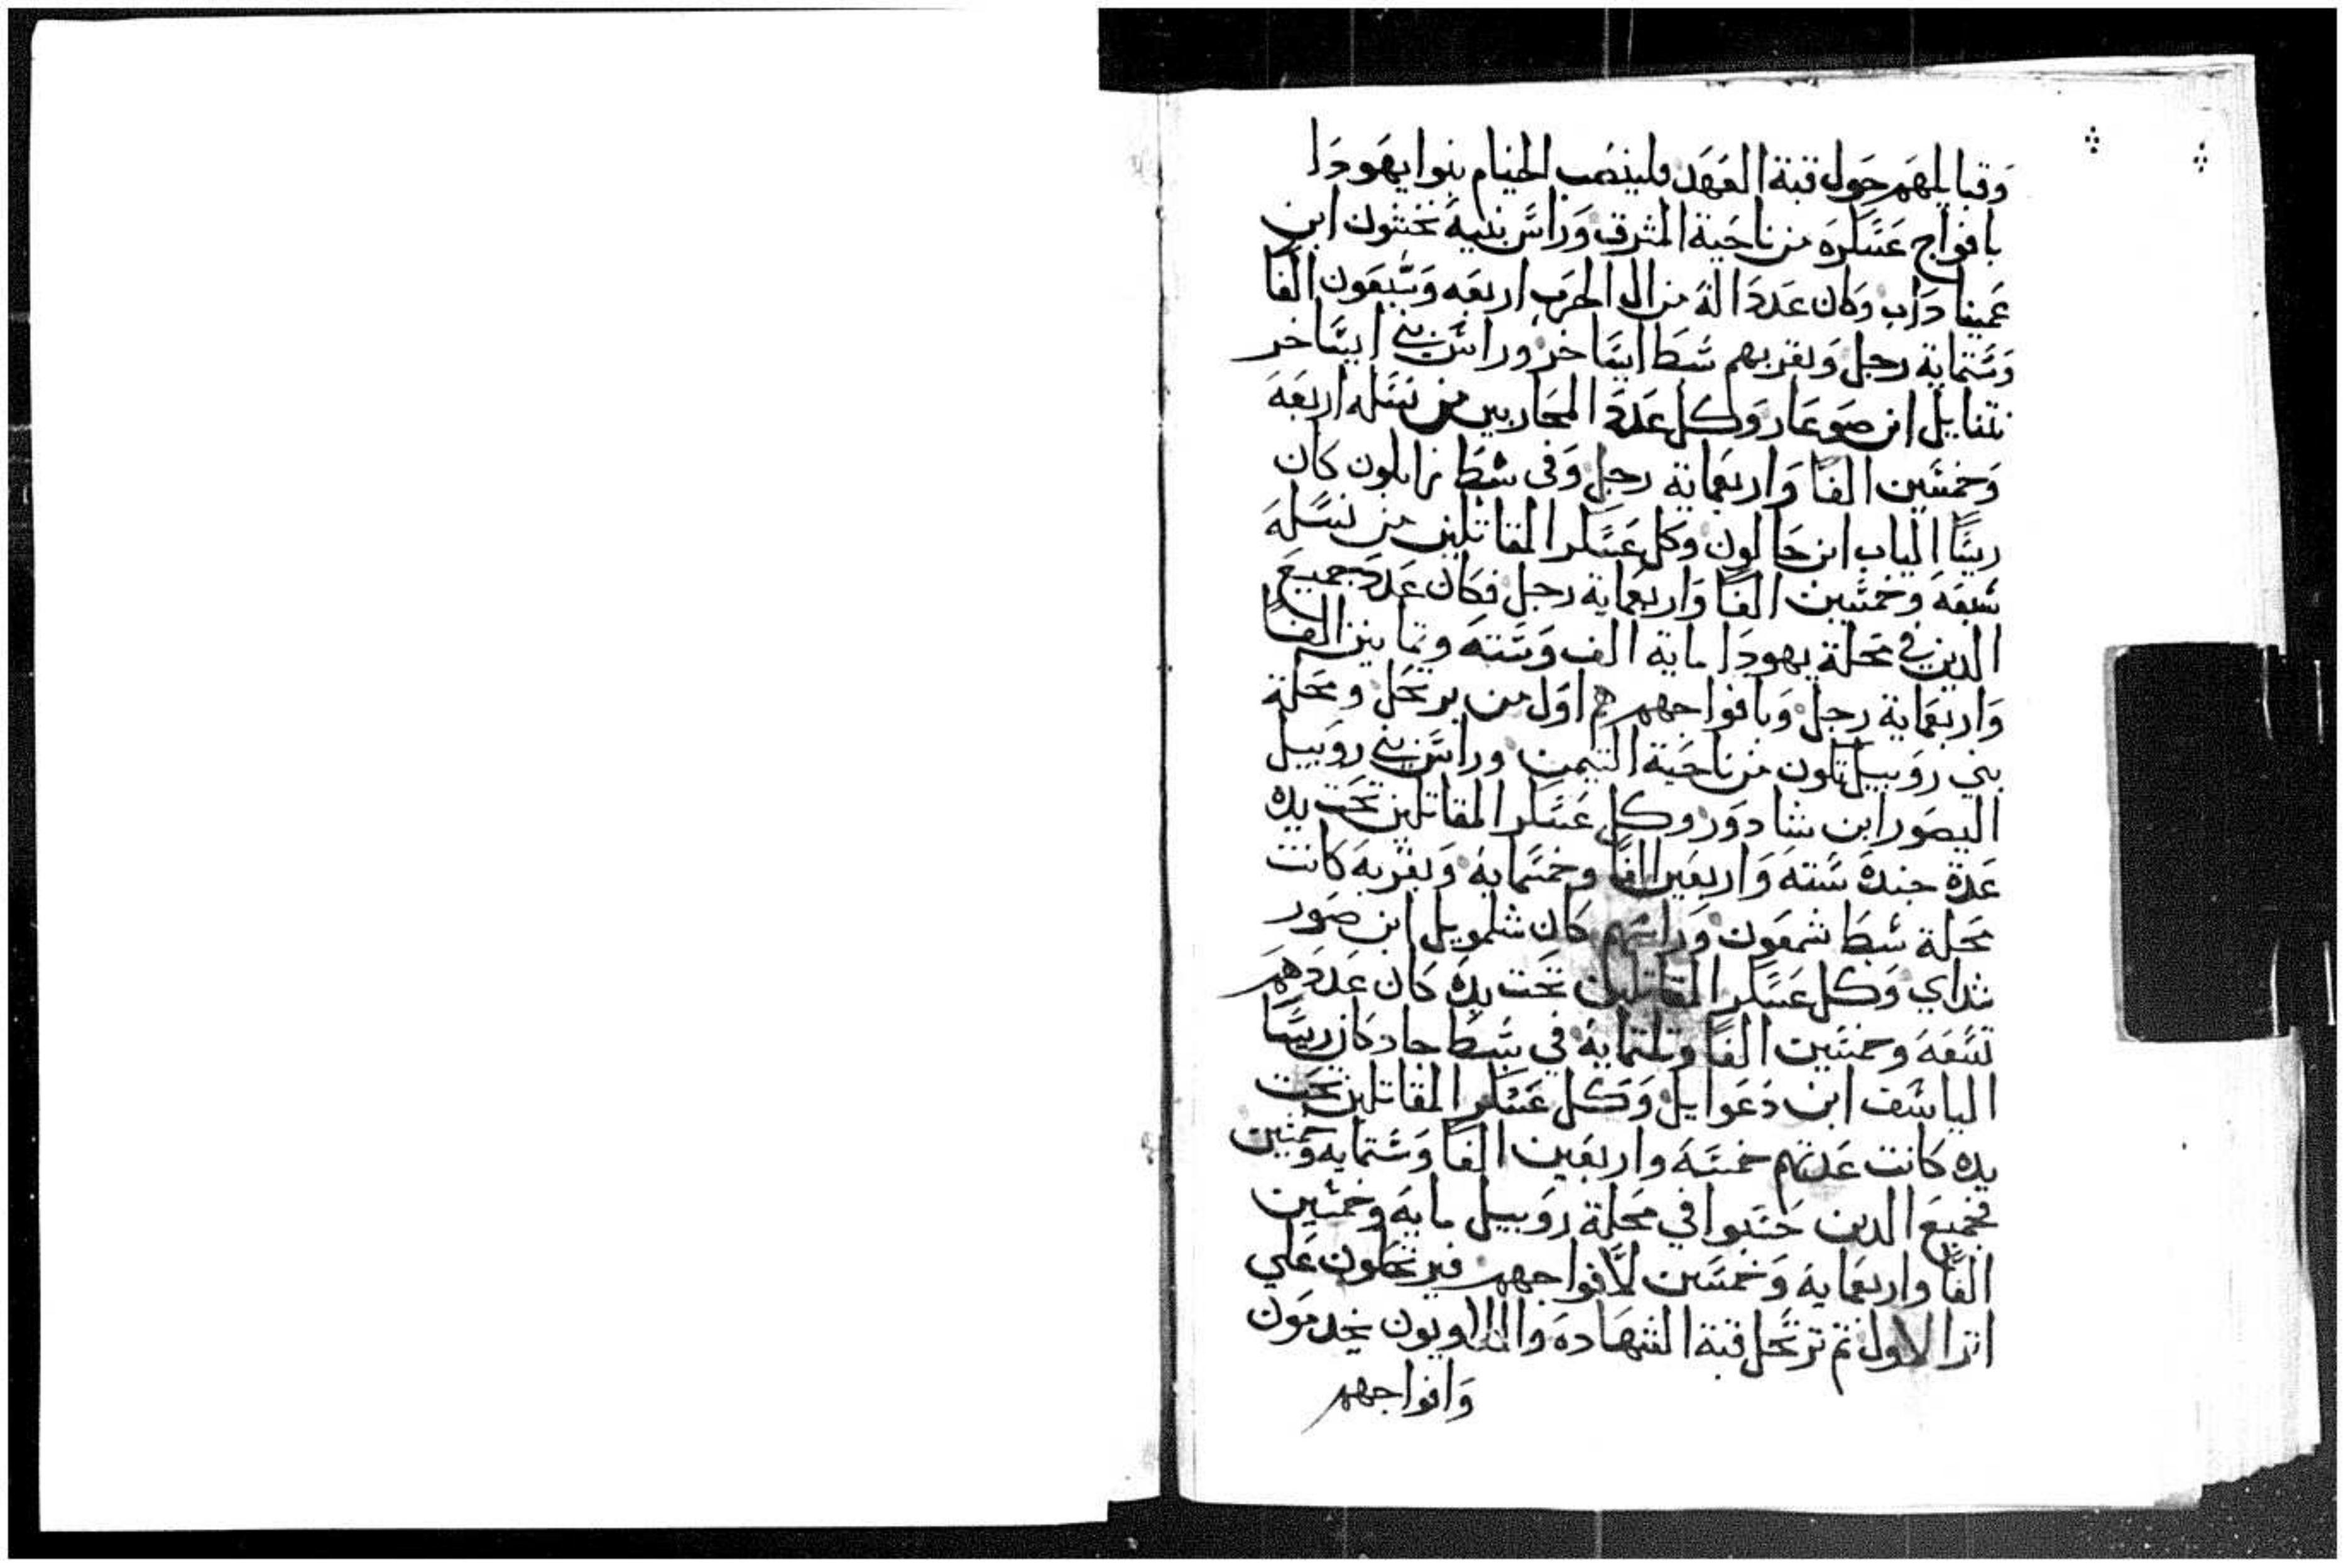 وَقبايلهم حَول قبة العَهَد فلينصَب الخيام بنوا يهَودَا
بافواج عَسَكرَه من ناحَية المشرق وَراسَ بنيه نحَشون ابن
عَمينا دَاب وَكان عَدَدَ الة من ال الحَرَب اربعَه وَسَبعَون الفا
وَسَتماية رجل وَبقربهم سَبطَ ايسَاخر وراسَ بني ايسَاخر
نتنايل ابن صَوعَار وَكل عَدَدَ المحَاربين من نسَله اربَعَة
وَخمسَين الفاً وَاربعَماية رجل وَفى سَبطَ زابلون كان
ريسَاً الياب ابن حَالون وَكل عَسَكر المقاتلين من نسَلة
سَبعَة وَخمسَين الفاً وَاربعَماية رجل فكان عَدَد جميعَ
الدين في محَلة يهودَا ماية الف وَسَتة وتمانين الفاً
وَاربَعَماية رجل وَبافواجهم هم اوَل من يرتحَل ومحَلة
بني روَبيل تكون من ناحَية التيمن وراسَ بني روَبيل
اليصَور ابن شادوَر وكل عَسَكر المقاتلين تحَت يده
عَدة جندهَ سَته وَاربعَين الفاً وخمسَماية وَبقربه كانت
محَلة سَبطَ شمعَون وَراسَهم كان شلمويل ابن صَور
شداي وَكل عَسَكر المقاتلين تحَت يدهَ كان عَدَدَهَم
تسَعَة وخمسَين الفاً وتلتماية في سَبطَ جاد كان ريسَاً
الياسَف ابن دَعَوايل وَكل عَسَكر المقاتلين تحَت
يده كانت عَدتهم خمسَة واربعَين الفاً وَسَتماية وَخمسَين
فجميعَ الدين حَسَبوا في محَلة روَبيل مايَة وَخمسَين
الفاً واربعَماية وَخمسَين لافواجهم فيرتحَلون عَلي
اتر الاول تم ترتحَل قبة الشهَادة واللاويون يخدمَون
وَافواجهم